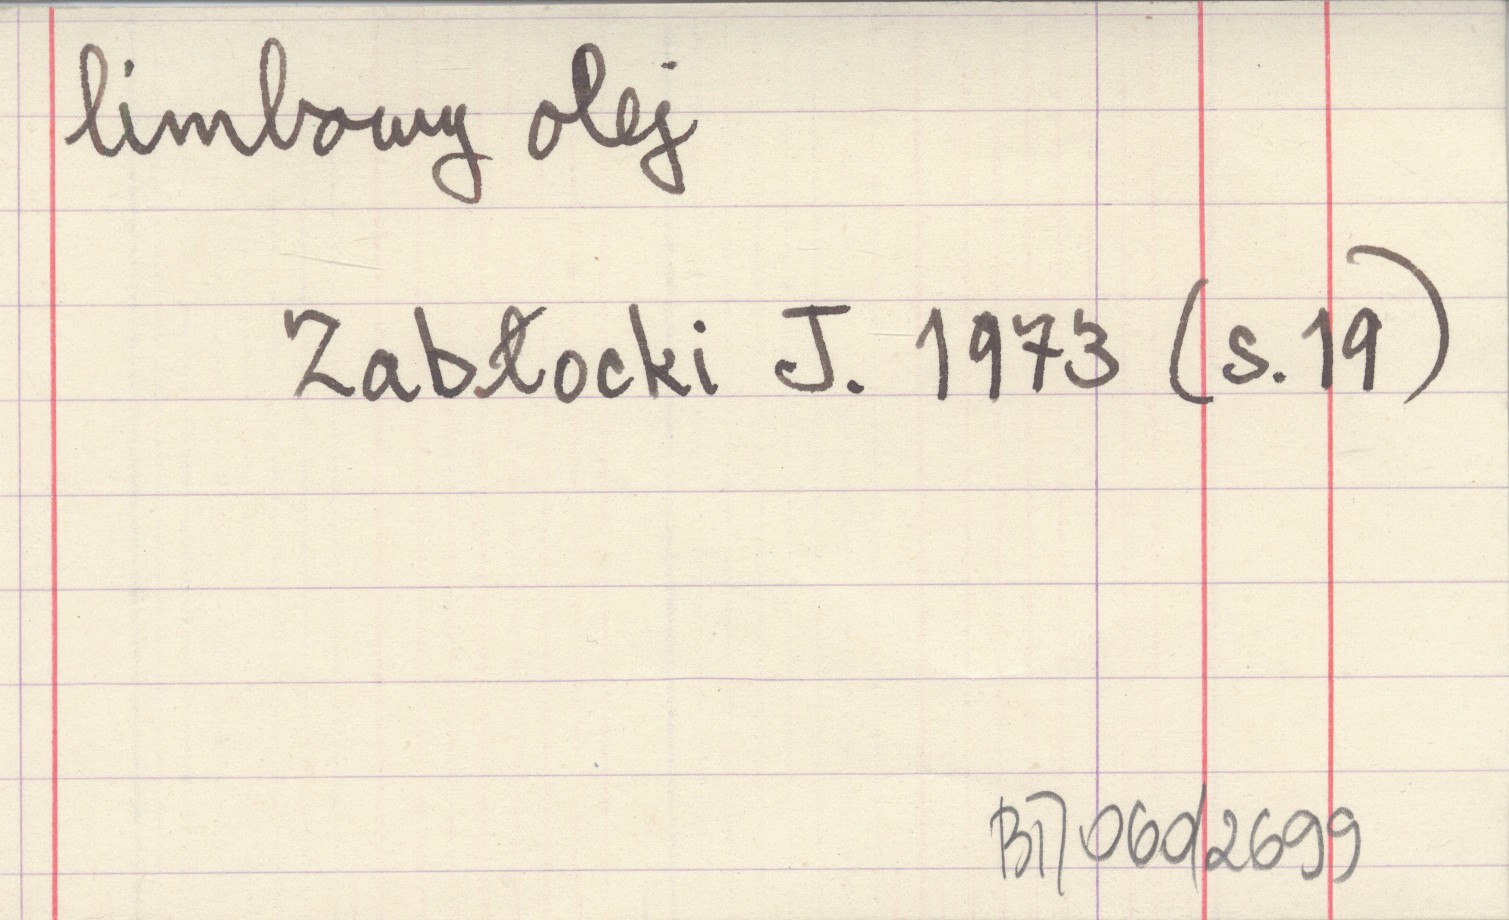 limbowy olej
Zabłocki J. 1973 (s.19)
060/2699